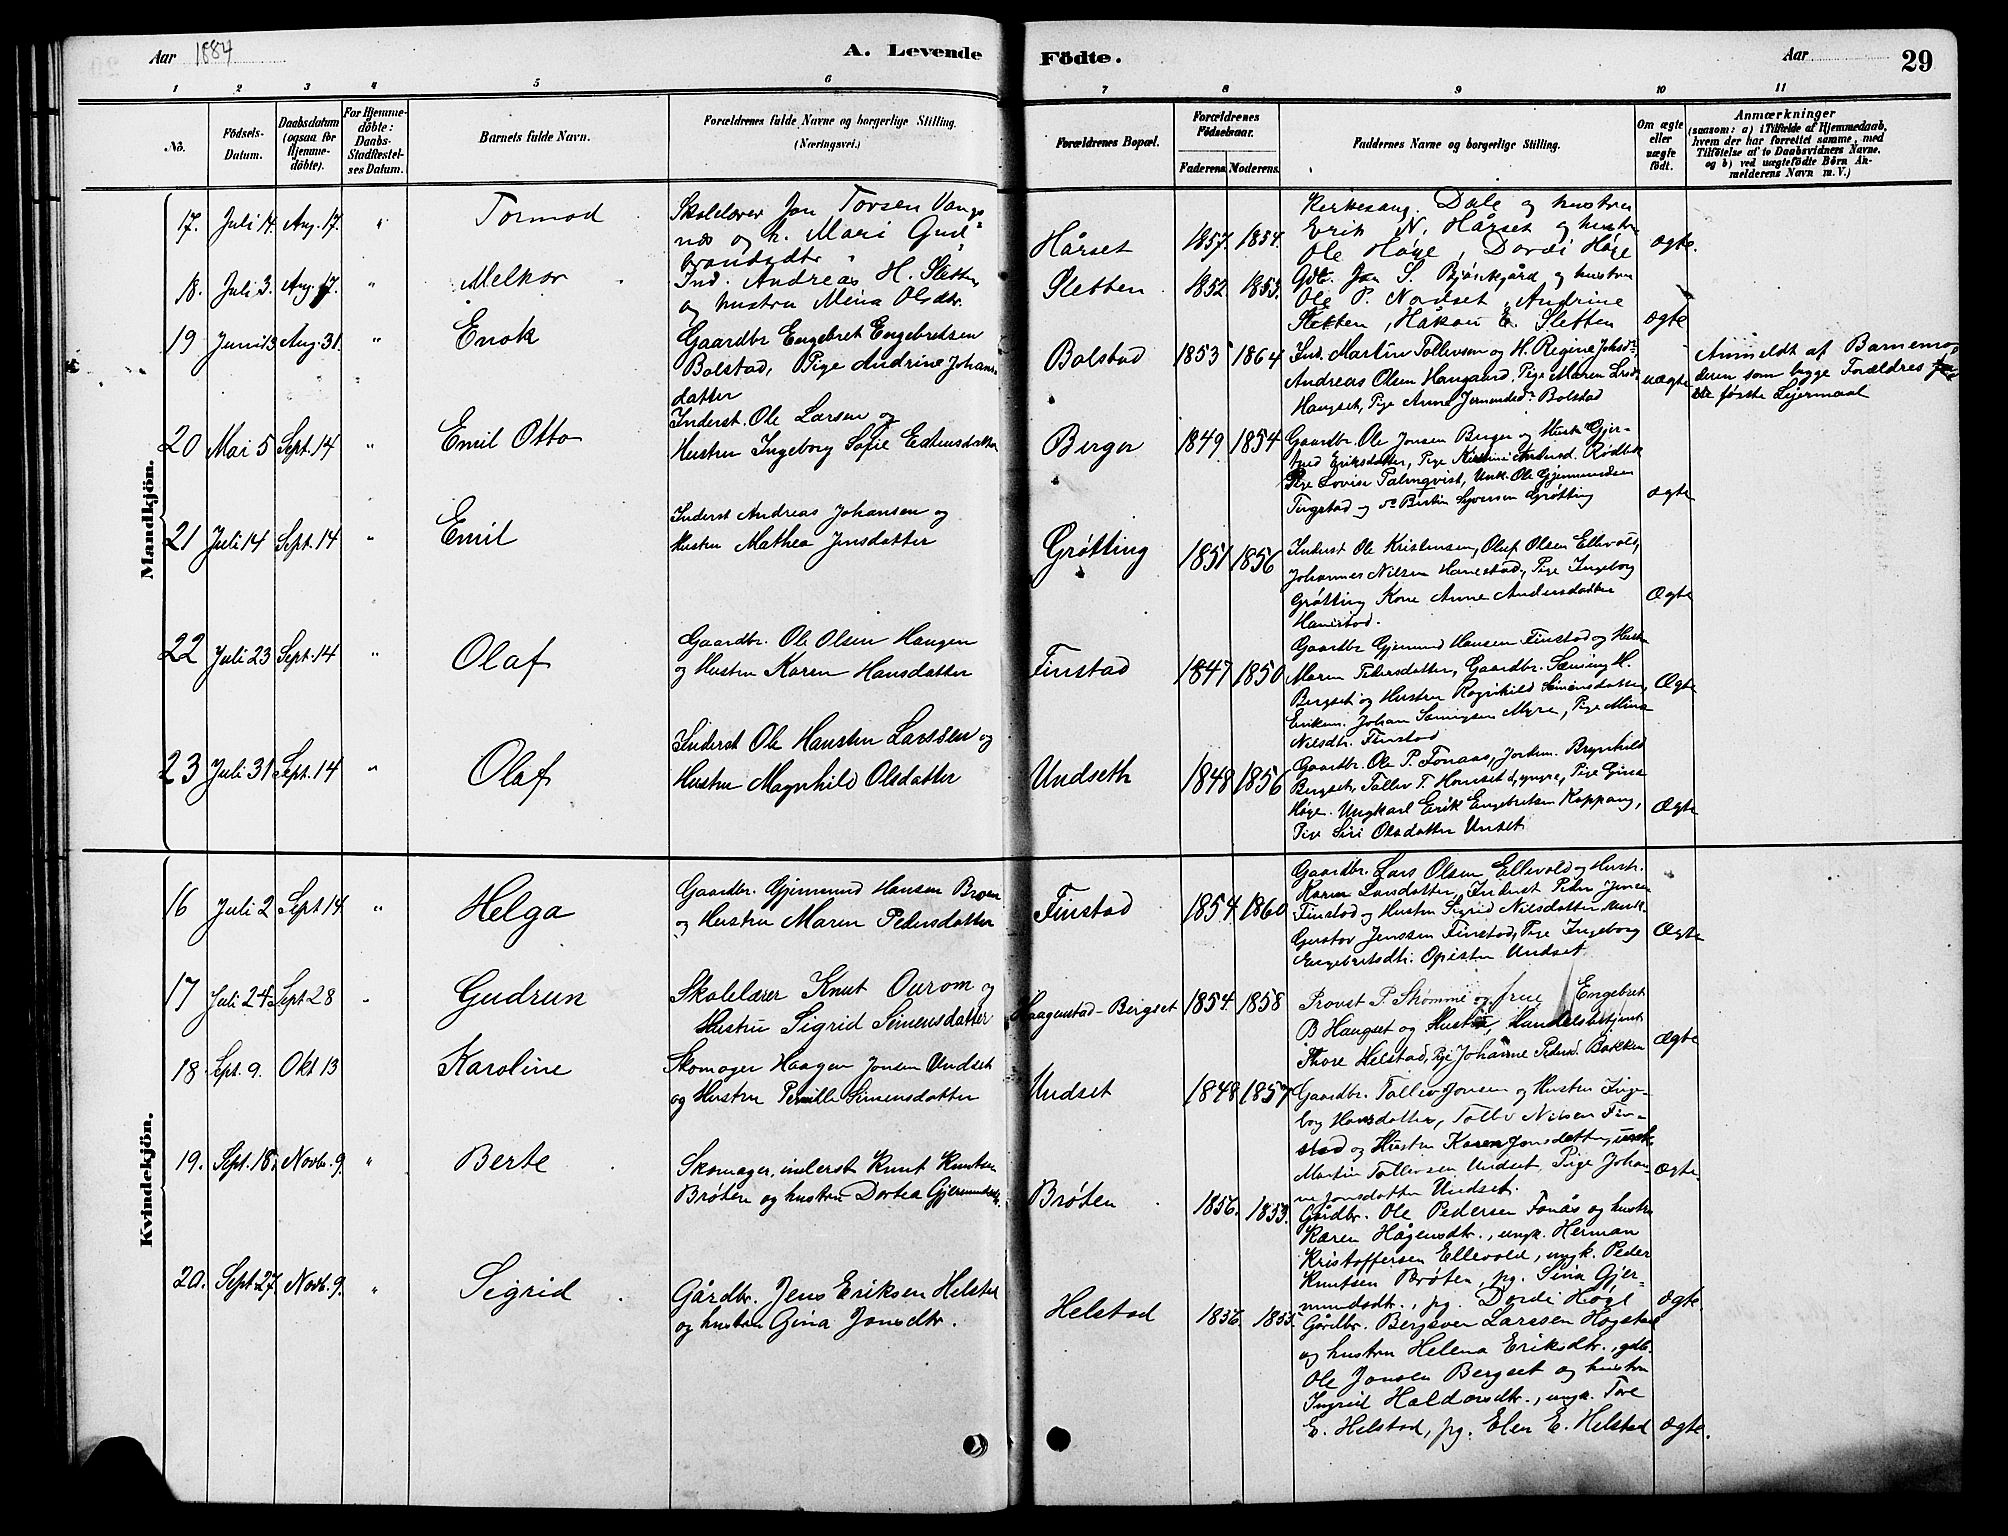 Aar 1884
A. Levende
Födte.
Aar
29
1 2 3 4 5 6 7 8 9 10 11
No.
Födsels-Datum.
Daabsdatum (ogsaa for Hjemmedöbte).
For Hjemmedöbte: Daabs-Stadfæstelses Datum.
Barnets fulde Navn.
Forældrenes fulde Navne og borgerlige Stilling. (Næringsvei.)
Forældrenes Bopæl.
Forældrenes Födselsaar.
Faderens. Moderens.
Faddernes Navne og borgerlige Stilling.
Om ægte eller uægte födt.
Anmærkninger
(saasom: a) i Tilfælde af Hjemmedaab, hvem der har forrettet samme, med Tilföielse af to Daabsvidners Navne, og b) ved uægtefödte Börn Anmelderens Navn m. V.)
Mandkjön.
17. Juli 14. Aug. 17. " Tormod
Skolelærer Jon Torsen Vangs
næs og h. Mari Gud
brandsdtr
Hårset 1857. 1854.
Kirkesang. Dale og hustru
Erik N. Hårset og hustr.
Ole Høye, Dordi Høye
ægte.
18. Juli 3. Aug. 17. " Melkor
Ind. Andreas H. Sletten
og hustru Mina Olsdtr.
Sletten 1852. 1853.
Gdb. Jon S. Bjørkgård og hustru
Ole P. Nordset, Andrine
Sletten, Håkon E. Sletten
ægte
19 Juni 13 Aug. 31. " Enok
Gaardbr Engebret Engebretsen
Bolstad, Pige Andrine Johans
datter
Bolstad 1853 1864
Ind. Martin Tollevsen og H. Regine Johsdr
Andreas Olsen Haugaard, Pige Maren
Haugset, Pige Anne Bolstad
uægte
Anmeldt af Barnemo-
deren som begge Forældres
første Lejermaal
20 Mai 5 Sept. 14 " Emil Otto
Inderst. Ole Larsen og
Hustru Ingeborg Sofie
Berger 1849 1854
Gaardbr. Ole Jonsen Berger og Hust. Gjer-
trud Eriksdatter, Pige Rødbek
Pige Lovise Palmqvist, Unk. Ole Gjermundsen
Tingstad og Syversen Grøtting
ægte
21 Juli 14 Sept. 14 " Emil
Inderst Andreas Johansen og
Hustru Mathea Jensdatter
Grøtting 1851 1856
Inderst Ole Kristensen, Oluf Olsen Ellevold,
Johannes Nilsen Hanestad, Pige Ingeborg
Grøtting Kone Anne Andersdatter
Hanestad.
Ægte
22 Juli 23 Sept. 14 " Olaf
Gaardbr. Ole Olsen Haugen
og Hustru Karen Hansdatter
Finstad 1847 1850
Gaardbr Gjermund Hansen Finstad og Hustru
Maren Pedersdatter, Gaardbr. Sæming H.
Bergset og Hustru Ragnhild Simensdatter,
Enkem. Johan Myre, Pige Mina
Nilsdtr. Finstad
Ægte
23 Juli 31 Sept. 14 " Olaf
Inderst Ole Hansen Larssen og
Hustru Magnhild Olsdatter
Undseth 1848 1856
Gaardbr. Ole P. Fonaas, Jordem. Brynhild
Bergset, Tollev T. Homset d. yngre, Pige Gina
Høye. Ungkarl Erik Engebretsen Koppang,
Pige Siri Olsdatter Unset
Ægte
Kvindekjön.
16 Juli 2 Sept 14 " Helga
Gaardbr. Gjermund Hansen Broen
og Hustru Maren Pedersdatter
Finstad 1854 1860
Gaardbr. Lars Olsen Ellevold og Hustr.
Karen Larsdatter, Inderst Peder Jensen
Finstad og Hustru Sigrid Nilsdatter Unk.
Gustav Jenssen Finstad, Pige Ingeborg
Engebretsdtr. Opseter Undset
Ægte
17 Juli 24 Sept 28 " Gudrun
Skolelærer Knut Ourom og
Hustru Sigrid Simensdatter
Haagenstad-Bergset 1854. 1858
Provst P. Strømme og frue, Engebret
B Haugset og Hustru, Handelsbetjent
Thore Helstad, Pige Johanne Pedersd. Bakken
Ægte
18 Sept. 9. Okt 13 Karoline
Skomager Haagen Jonsen Undset
og Hustru Pernille Simensdatter
Undset 1848 1857
Gaardbr. Tollev Jonsen og Hustru Inge-
borg Hansdatter, Tollv Nilsen Fin-
stad og Hustru Karen Jonsdatter, unk.
Martin Tollevsen Undset, Pige Johan
ne Jonsdatter Undset.
Ægte.
19. Sept. 18. Novb. 9. " Berte
Skomager, inderst Knut Knutsen
Brøten og hustru Dortea Gjermundsdtr.
Brøten 1856. 1853.
Gårdbr. Ole Pedersen Fonås og hustru
Karen Hågensdtr., ungk. Herman
Kristoffersen Ellevold, ungk. Peder
Knutsen Brøten, pg. Sina Gjer-
mundsdtr., pg. Dordi Høye
Ægte.
20. Sept. 27. Novb. 9. " Sigrid
Gårdbr. Jens Eriksen Helstad
og hustru Gina Jonsdtr.
Helstad 1856. 1855.
Gårdbr. Bergsven Larssen Hogstad
og hustru Helena Eriksdtr., gdb.
Ole Jonsen Bergset og hustru
Ingrid Haldorsdtr., ungk. Tore
E. Helstad, pg. Elen E. Helstad
ægte.